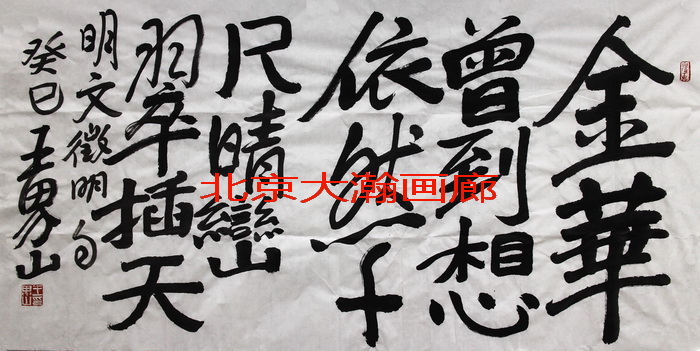 金華
曾到想
依然千
尺晴巒
翠插天
明文徵明句
癸巳王界山
北京大瀚画廊